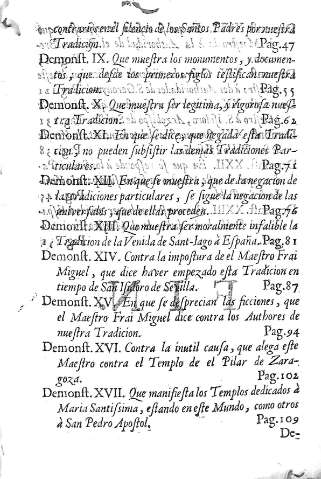 contrario en el silencio de los Santos Padres por nuestra
Tradicion. Pag.47
Demonst. IX. Que muestra los monumentos, y documen-
tos, que desde los primeros siglos testifican nuestra
Tradicion. Pag.55
Demonst. X. Que muestra ser legitima, y rigorosa nues-
tra Tradicion. Pag.62
Demonst. XI. En que se dice, que negada esta Tradi-
cion, no pueden subsistir las demàs Tradiciones Par-
ticulares. Pag.71
Demonst. XII. En que se muestra, que de la negacion de
las Tradiciones particulares, se sigue la negacion de las
universales, que de ellas proceden. Pag.76
Demonst. XIII. Que muestra ser moralmente infalible la
Tradicion de la Venida de Sant-Iago à España. Pag.81
Demonst. XIV. Contra la impostura de el Maestro Frai
Miguel, que dice haver empezado esta Tradicion en
tiempo de San Isidoro de Sevilla. Pag.87
Demonst. XV. En que se desprecian las ficciones, que
el Maestro Frai Miguel dice contra los Authores de
nuestra Tradicion. Pag.94
Demonst. XVI. Contra la inutil causa, que alega este
Maestro contra el Templo de el Pilar de Zara-
goza. Pag.102
Demonst. XVII. Que manifiesta los Templos dedicados à
Maria Santissima, estando en este Mundo, como otros
à San Pedro Apostol. Pag.109
De-